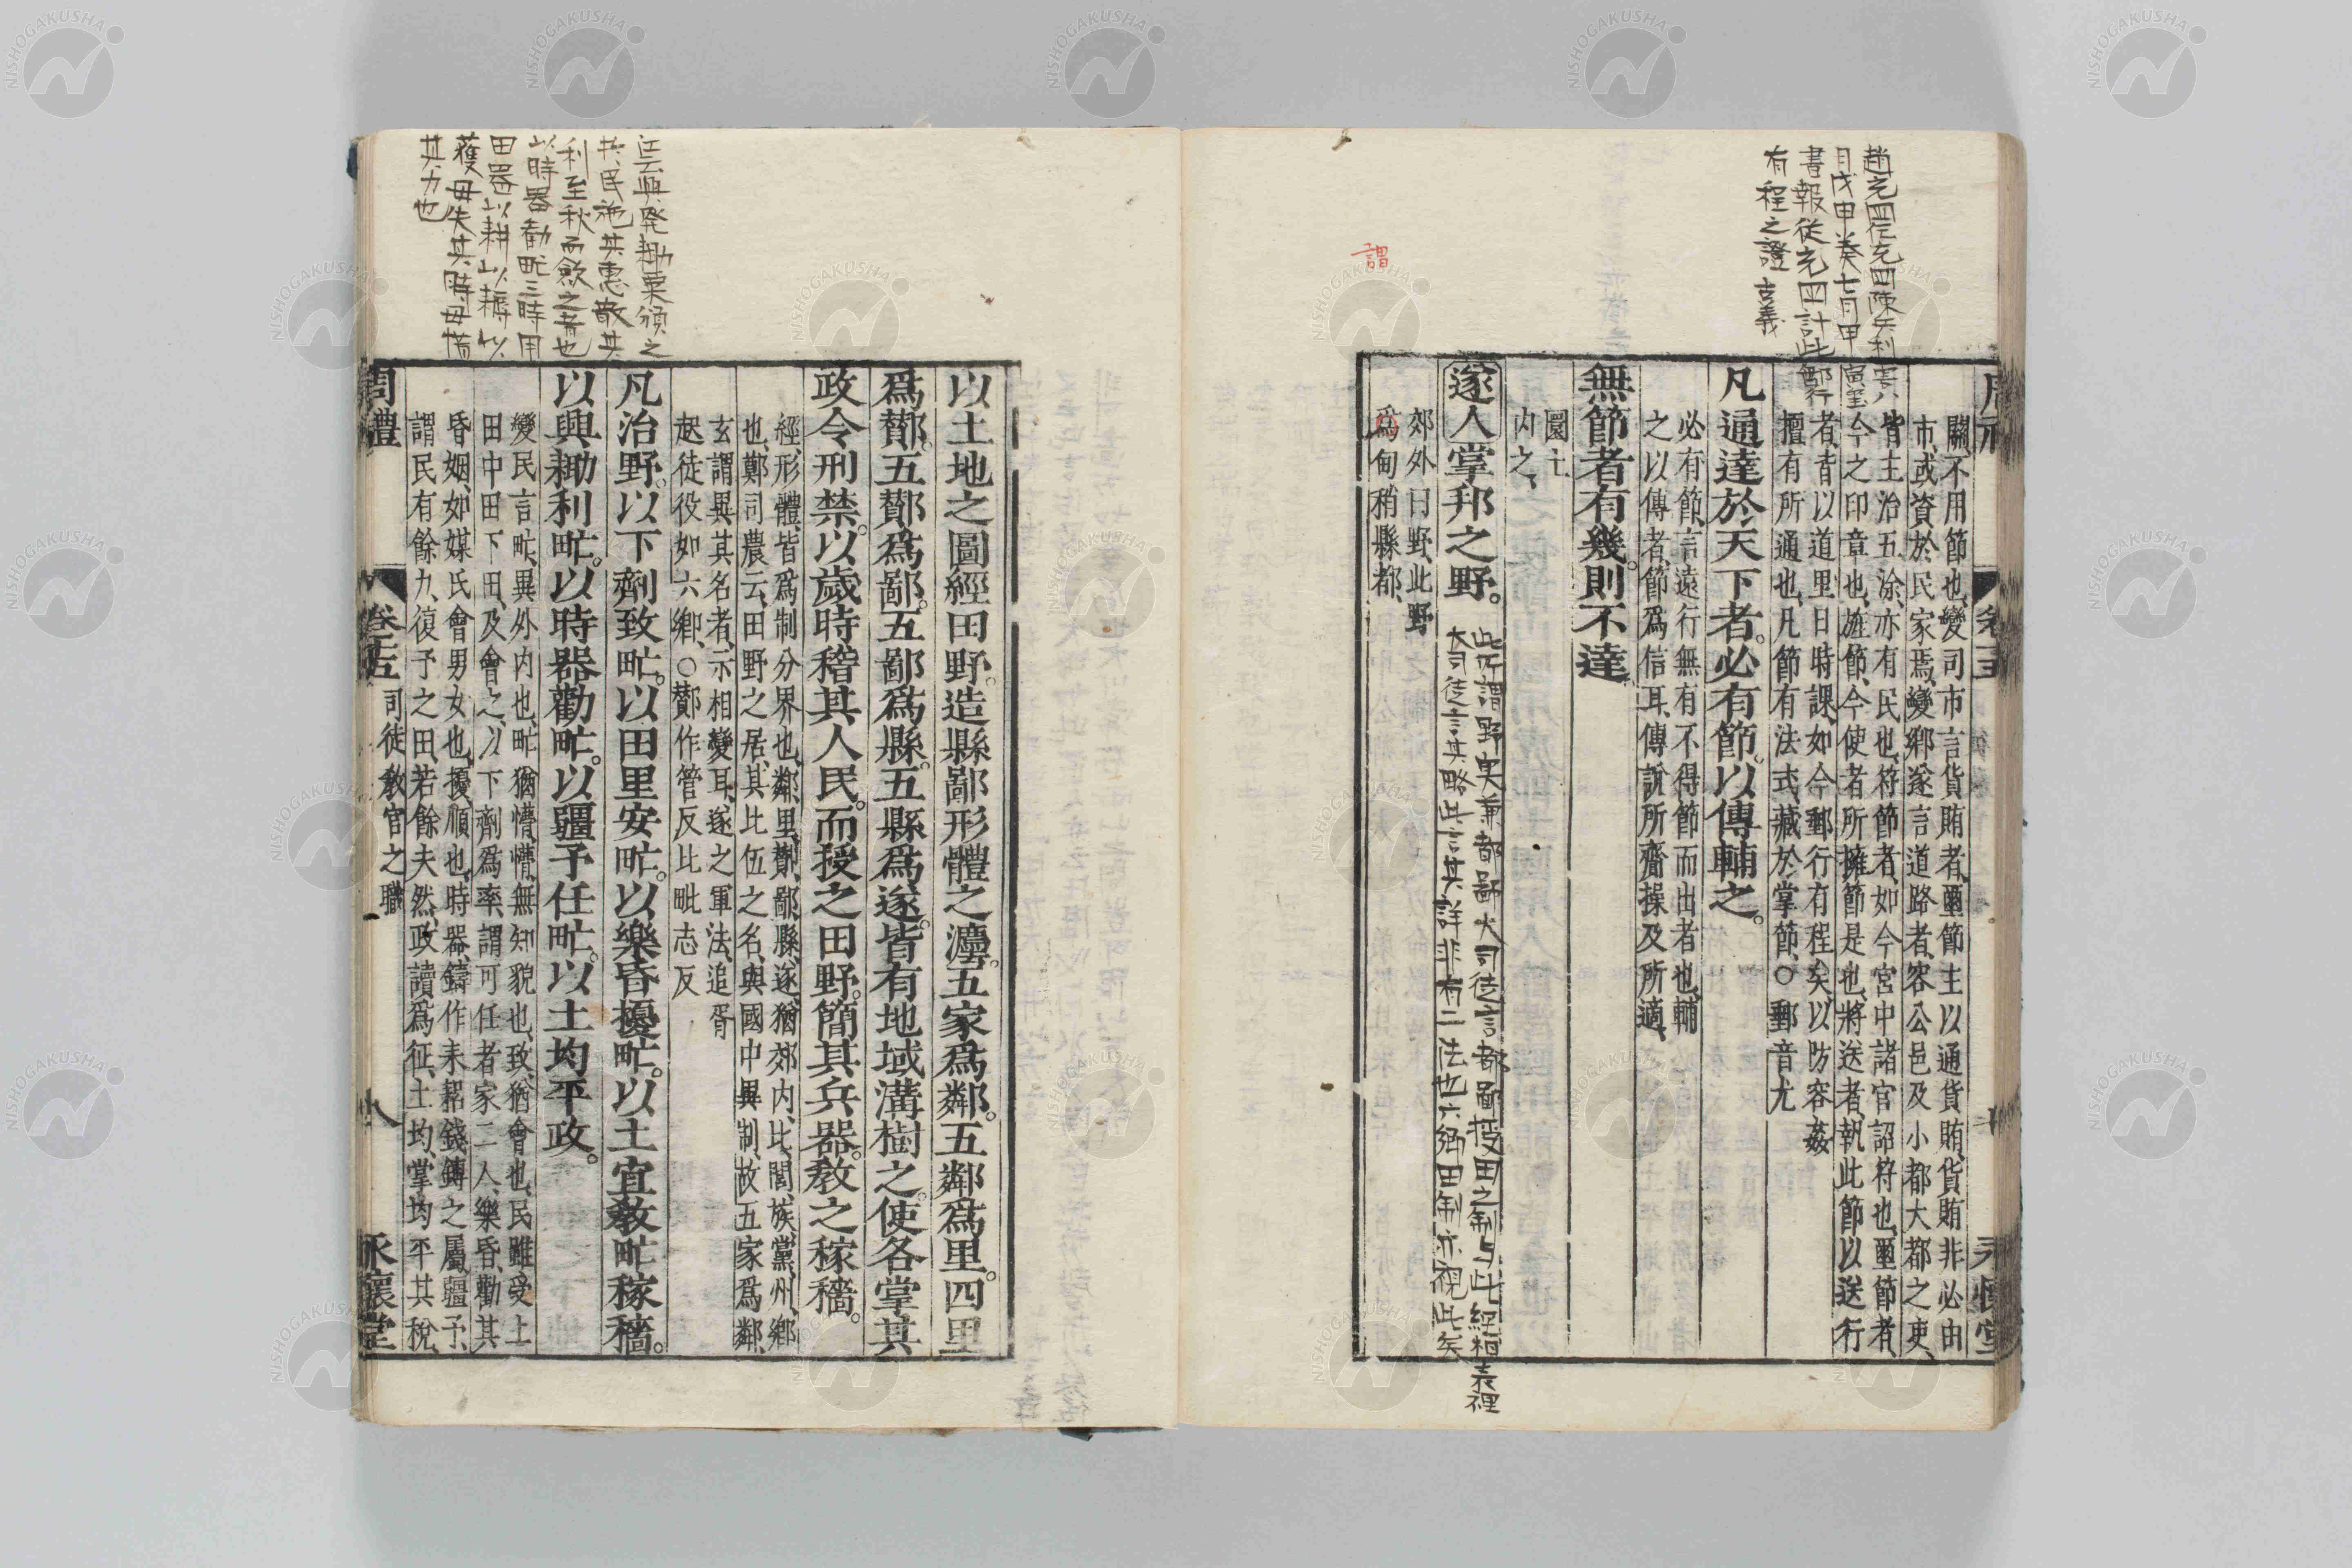 趙充國傳充國陳兵利害六
月戊申奏七月甲寅璽
書報從充國計此郵行
有程之證 古義
關、不用節也、變司市言貨賄者、璽節主以通貨賄、貨賄非必由
市、或資於民家焉、變鄉遂言道路者、容公邑及小都大都之吏、
皆主治五涂、亦有民也、符節者、如今宮中諸官詔符也、璽節者、
今之印章也、旌節、今使者所擁節是也、將送者、執此節以送行
者、皆以道里日時課、如今郵行有程矣、以防容姦
擅有所通也、凡節有法式、藏於掌節、○郵音尤
凡通達於天下者。必有節。以傳輔之。
必有節、言遠行無有不得節而出者也、輔
之以傳者、節爲信耳、傳說所齎操及所適、
無節者有幾。則不達。
圜土
内之、
遂人掌邦之野。
此所謂野実兼都鄙大司徒言都鄙授田之制与此經相表裡
大司徒言其略此言其詳非有二法也六郷田制亦視此矣
郊外曰野、此野
謂
爲甸稍縣都、
以土地之圖經田野。造縣鄙形體之灋。五家爲鄰。五鄰爲里。四里
爲酇。五酇爲鄙。五鄙爲縣。五縣爲遂。皆有地域溝樹之。使各掌其
政令刑禁。以歲時稽其人民。而授之田野。簡其兵器。敎之稼穡。
經、形體、皆爲制分界也、鄰、里、酇、鄙、縣、遂、猶郊内、比、閭、族、黨、州、鄉
也、鄭司農云、田野之居、其比伍之名、與國中異制、故五家爲鄰、
玄謂異其名者、示相變耳、遂之軍法、追胥
起徒役如六鄉、○酇作管反比毗志反
凡治野。以下劑致甿。以田里安甿。以樂昏擾甿。以土宜敎甿稼穡。
以興耡利甿。以時器勸甿。以疆予任甿。以土均平政。
變民言甿、異外内也、甿猶懵、懵無知貌也、致、猶會也、民雖受上
田中田下田、及會之、以下劑爲率、謂可任者家二人、樂昏、勸其
昏姻、如媒氏會男女也、擾、順也、時器、鑄作耒耜錢鎛之屬、疆予、
謂民有餘力、復予之田、若餘夫然、政讀爲征、土均、掌均平其稅、
注云興發耡粟頒之
於民施其惠散其
利至秋而斂之者也
以時器勸甿三時用
田器以耕以耨以
穫毋失其時毋惰
其力也
周禮 卷十五 司徒敎官之職 八 永懷堂